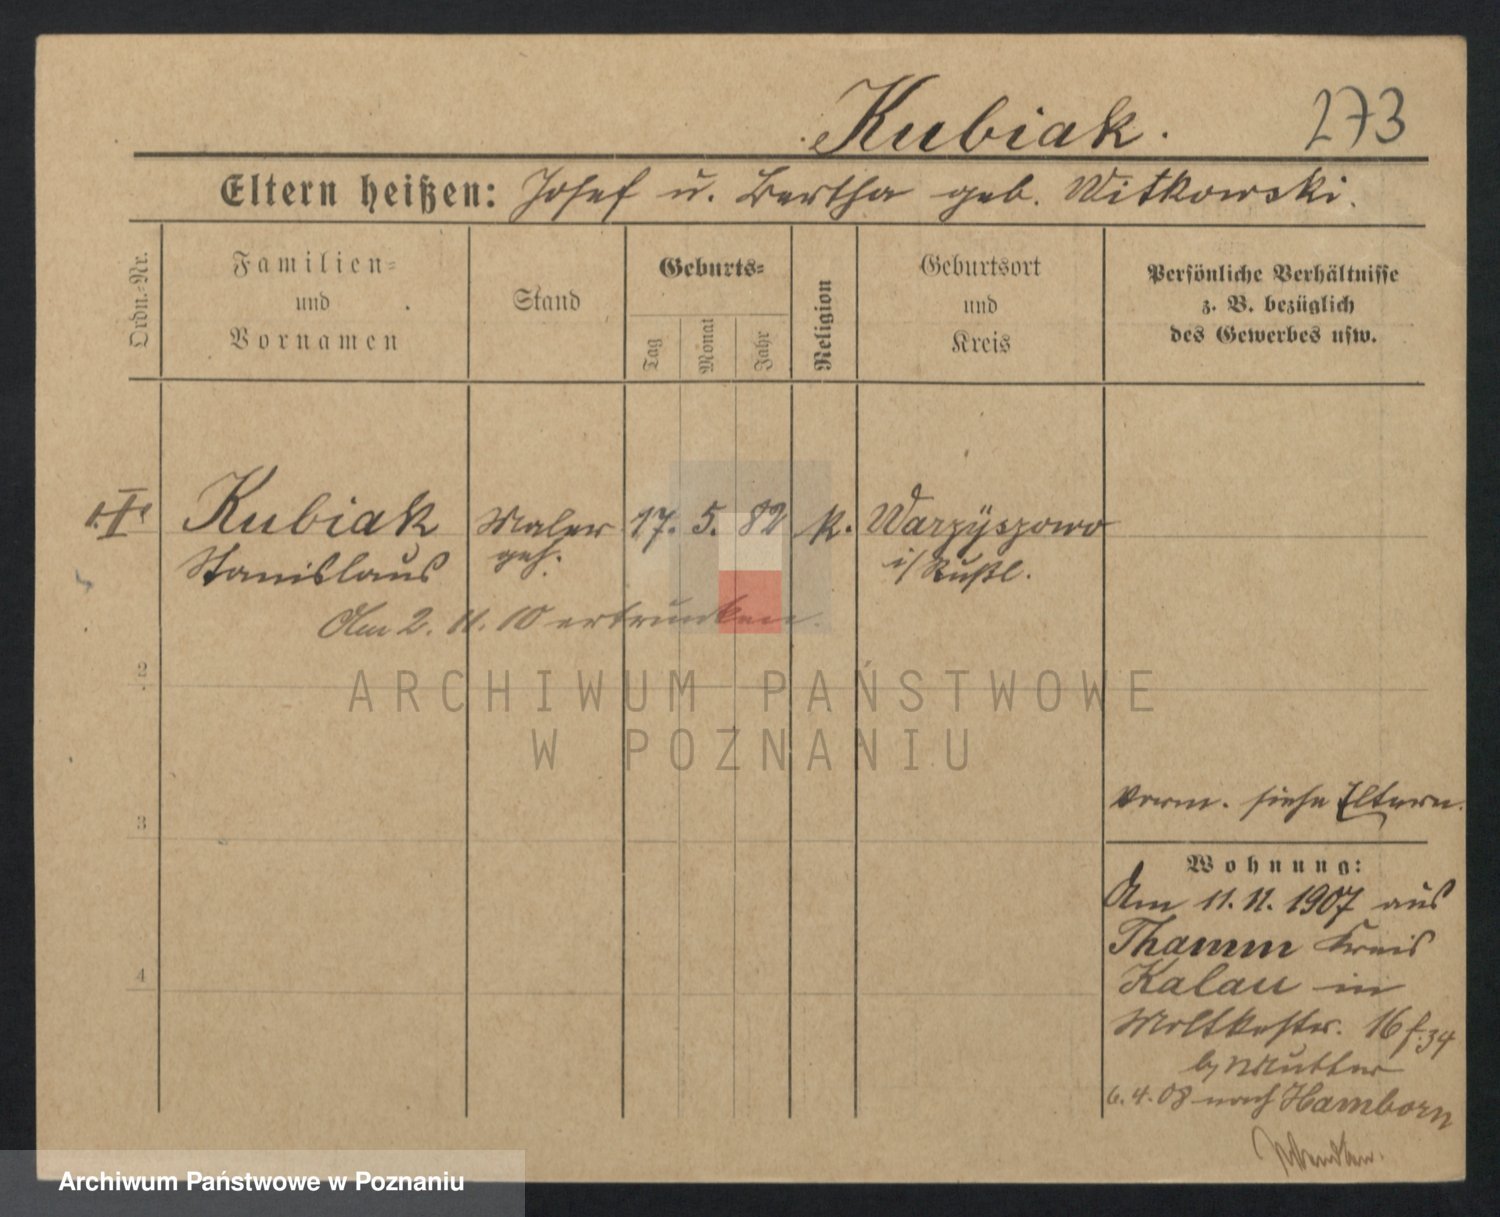 Kubiak. 273
Eltern heißen: Josef u. Bertha geb. Witkowski.
Ordn.-Nr.
Familien-
und
Vornamen
Stand
Geburts-
Tag
Monat
Jahr
Religion
Geburtsort
und
Kreis
Persönliche Verhältnisse
z. B. bezüglich
des Gewerbes usw.
Kubiak Maler 17. 5. 82 k. Warzyszowo
Stanislaus geh. i/Rußl.
Am 2. 11. 10 ertrunken.
2
ARCHIWUM PAŃSTWOWE
W POZNANIU
3
4
Verm. siehe Eltern.
Wohnung:
Am 11. 11. 1907 aus
Thamm Kreis
Kalau in
Moltkestr. 16 f. 34
b/ Mutter
6. 4. 08 nach Hamborn
Archiwum Państwowe w Poznaniu